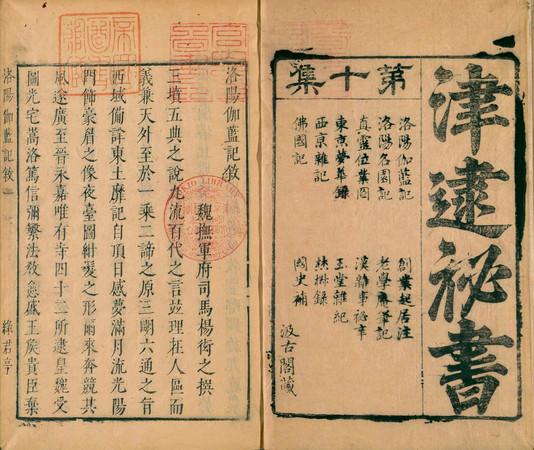 津逮祕書
第十集
洛陽伽藍記 創業起居注
洛陽名園記 老學庵筆記
真靈位業圖 漢雜事秘辛
東京夢華錄 玉堂雜紀
西京雜記 焚椒錄
佛國記 國史補
汲古閣藏
洛陽伽藍記敘
魏撫軍府司馬楊衒之撰
三墳五典之說九流百代之言並理在人區而
義兼天外至於一乘二諦之原三明六通之旨
西域備詳東土靡記自頂日感夢滿月流光陽
門飾豪眉之像夜臺圖紺髮之形爾來奔競其
風遂廣至晉永嘉唯有寺四十二所逮皇魏受
圖光宅嵩洛篤信彌繁法教愈盛王侯貴臣棄
洛陽伽藍記敘 綠君亭